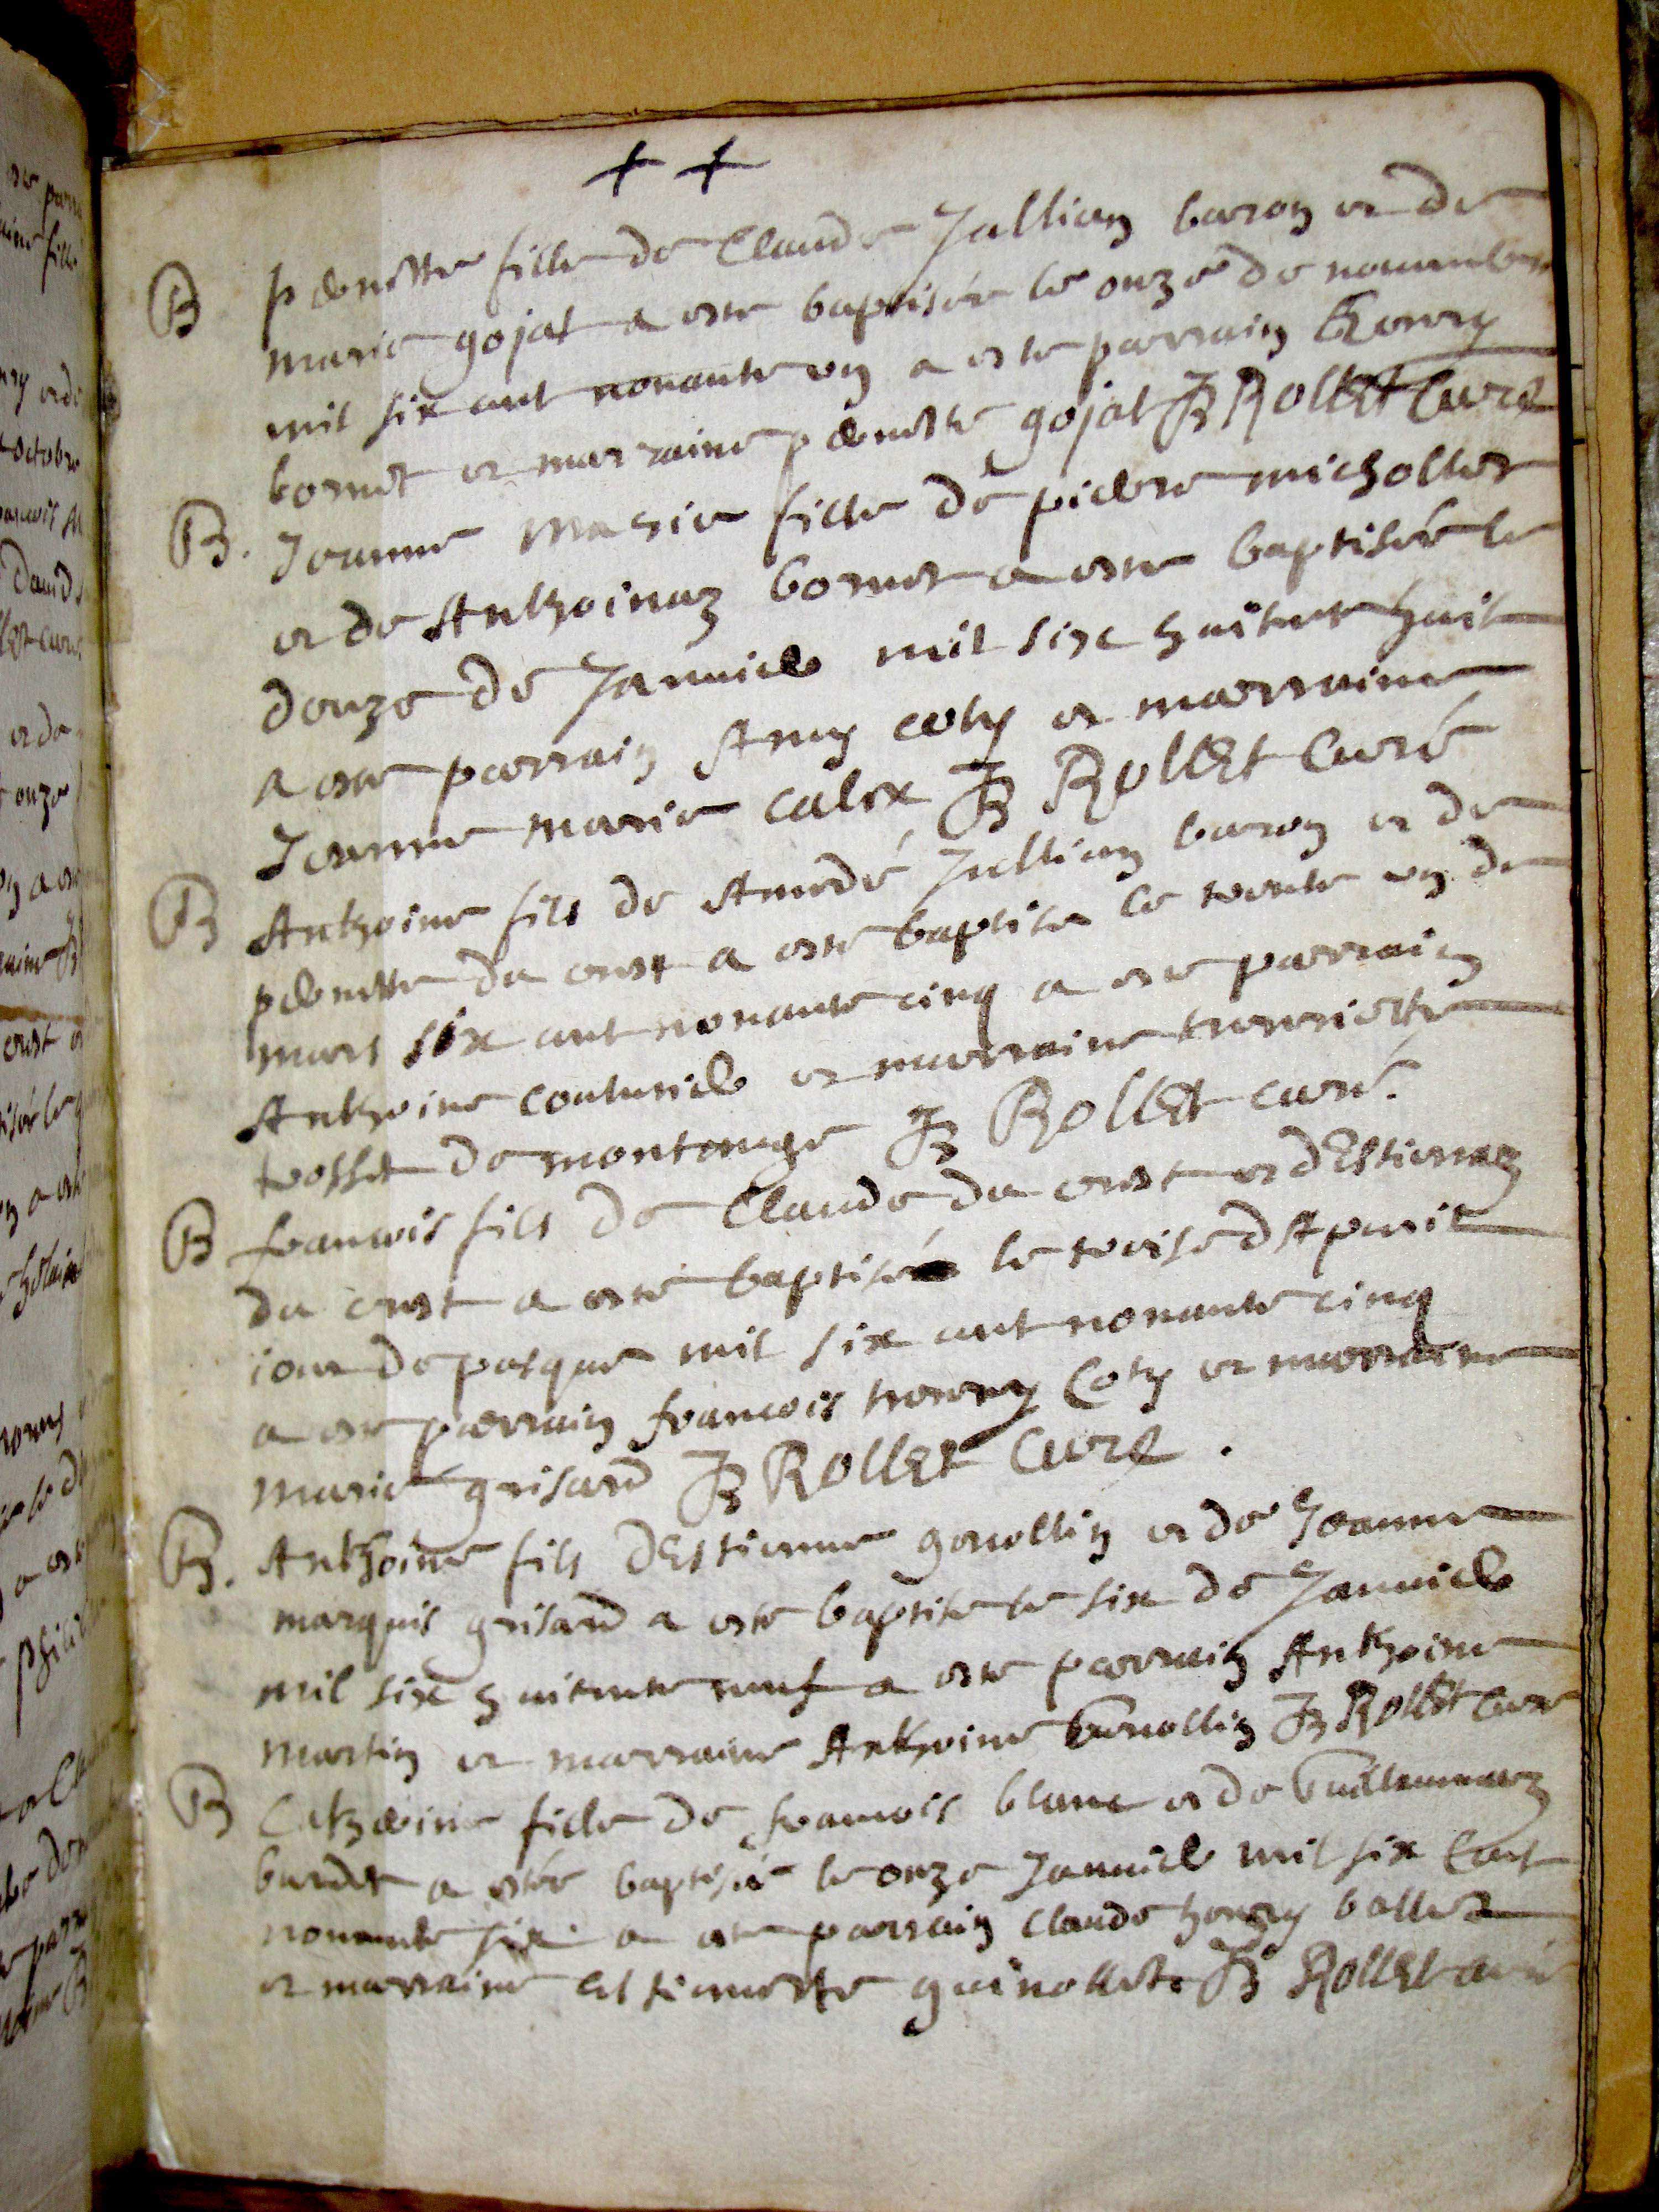 + +
B pernette fille de Claude Jullien baron et de
marie gojat a este baptisée le onze de nouembre
mil six cent nonante un a este parrain henry
bornet et marraine pernette gojat JB Rollet Curé
B. Jeanne marie fille de pierre michollet
et de Anthoinaz bornet a este baptisée le
douze de Januier mil six huitante huit
a este parrain Amy coty et marraine
Jeanne marie calex JB Rollet Curé
B Anthoine fils de Amedé Jullien baron et de
pernette du crest a este baptise le trente un de
mars six cent nonante cinq a este parrain
Anthoine couturier et marraine henriette
trosset de montonge JB Rollet curé.
B francois fils de Claude du crest et dEstienaz
du crest a esté baptisé le troise dApuril
iour de pasque mil six cent nonante cinq
a este parrain francois henry Coty et marraine
marie grisard JB Rollet Curé.
B. Anthoine fils dEstienne gonollin et de Jeanne
marquis grisard a este baptise le six de Januier
mil six huitante neuf a este parrain Anthoine
martin et marraine Anthoine JB Rollet Curé
B Catherine fille de francois blanc et de Guillemaz
burdet a estée baptisée le onze Januier mil six Cent
nonante six a este parrain claude henry ballet
et marraine estiennette guinollet JB Rollet curé